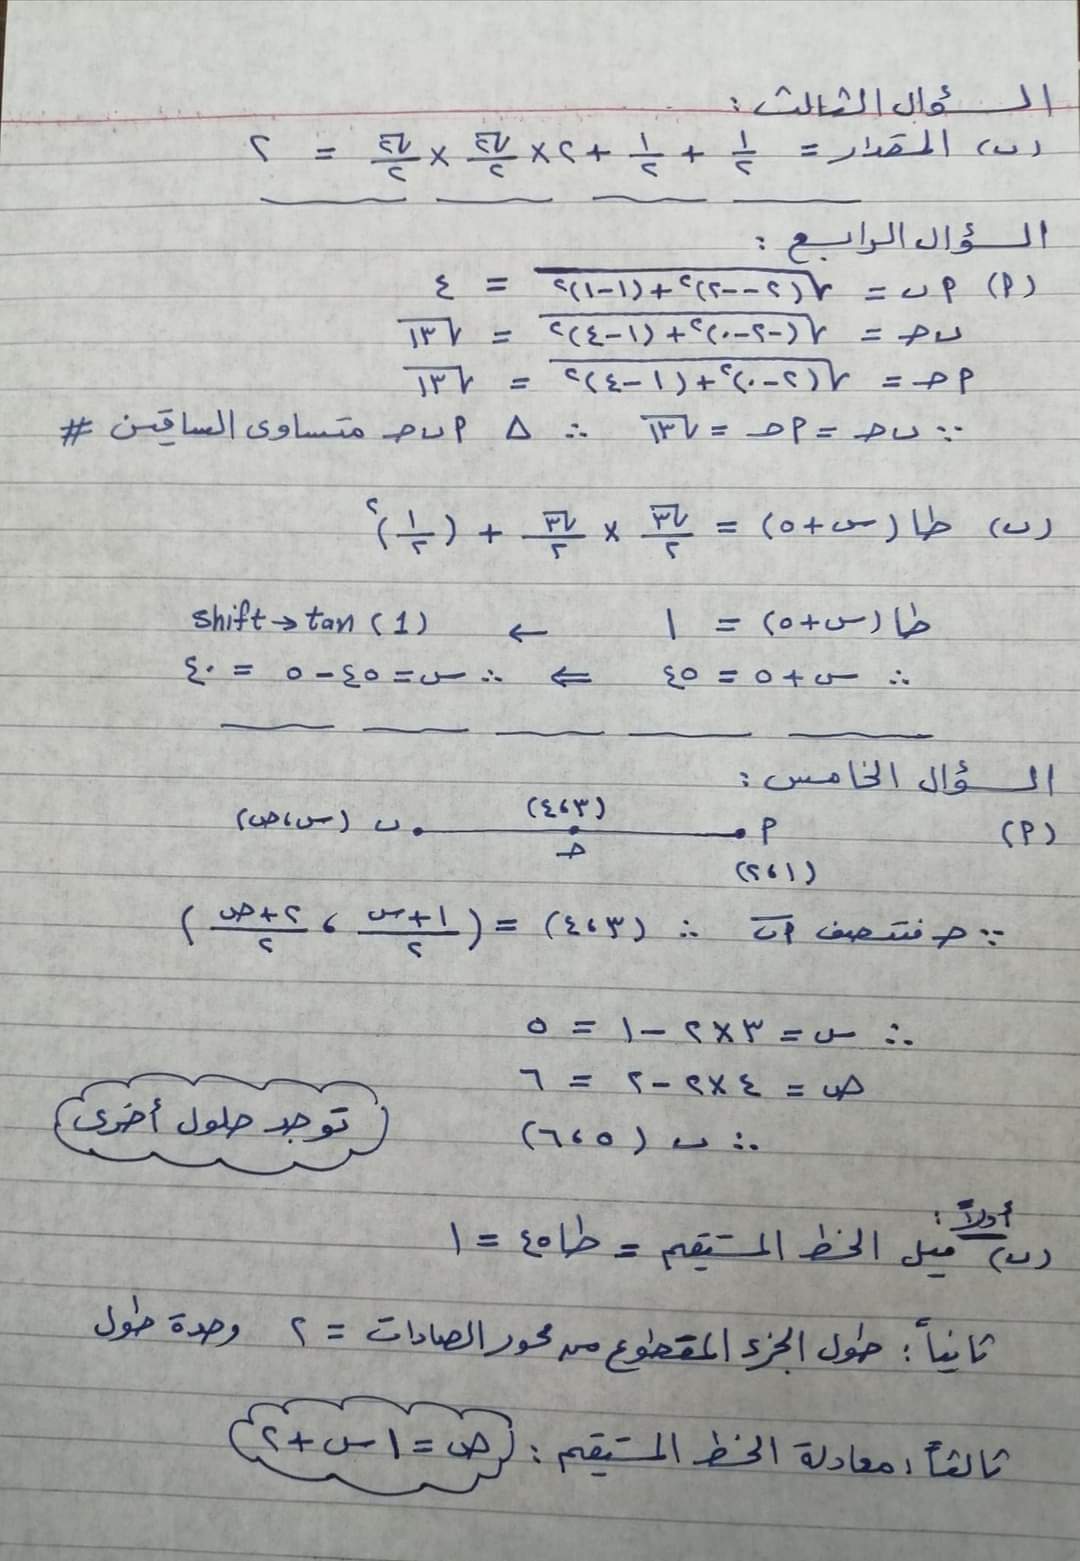 السؤال الثالث :
(ب) المقدار = ١/٢ + ١/٢ + ٢ × √٢/٢ × √٢/٢ = ٢
السؤال الرابع :
(أ) أب = √(٢--٢)² + (١-١)² = ٤
ب حـ = √(-٢-٠)² + (١-٤)² = √١٣
أ حـ = √(٢-٠)² + (١-٤)² = √١٣
∵ ب حـ = أ حـ = √١٣ ∴ △ أ ب حـ متساوى الساقين #
(ب) طا (س+٥) = √٣/٢ × √٣/٢ + (١/٢)²
طا (س+٥) = ١ ← shift → tan (1)
∴ س + ٥ = ٤٥ ⇐ ∴ س = ٤٥ - ٥ = ٤٠
السؤال الخامس :
(أ) أ (١،٢) حـ (٣،٤) ب (س،ص)
∵ حـ منتصف أب ∴ (٣،٤) = (١+س/٢ ، ٢+ص/٢)
∴ س = ٣×٢ - ١ = ٥
ص = ٤×٢ - ٢ = ٦
∴ ب (٥،٦)
توجد حلول أخرى
أولاً :
(ب) ميل الخط المستقيم = طا ٤٥ = ١
ثانياً : طول الجزء المقطوع من محور الصادات = ٢ وحدة طول
ثالثاً : معادلة الخط المستقيم : ص = ١ س + ٢